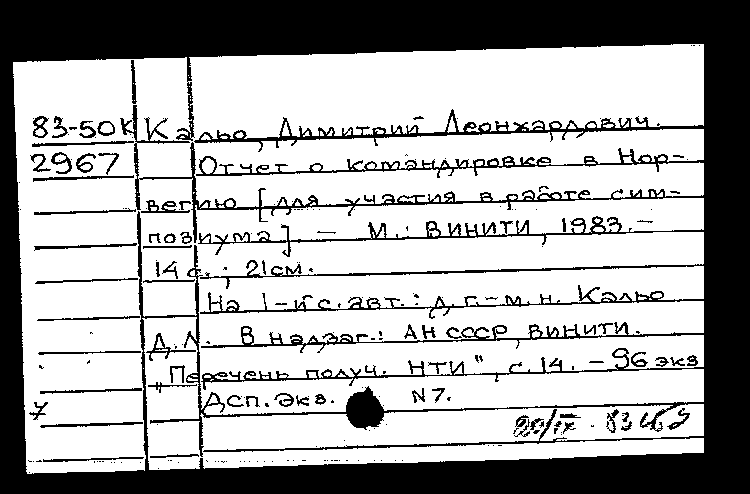 83-50К Кальо, Димитрий Леонхардович.
2967 Отчет о командировке в Нор-
вегию [для участия в работе сим-
позиума]. – М.: ВИНИТИ, 1983. –
14 с.; 21 см.
На 1-й с. авт.: д. г.-м. н. Кальо
Д.Л. В надзаг.: АН СССР, ВИНИТИ.
„Перечень получ. НТИ", с. 14. – 96 экз
Дсп. Экз. N 7.
20/IX - 83